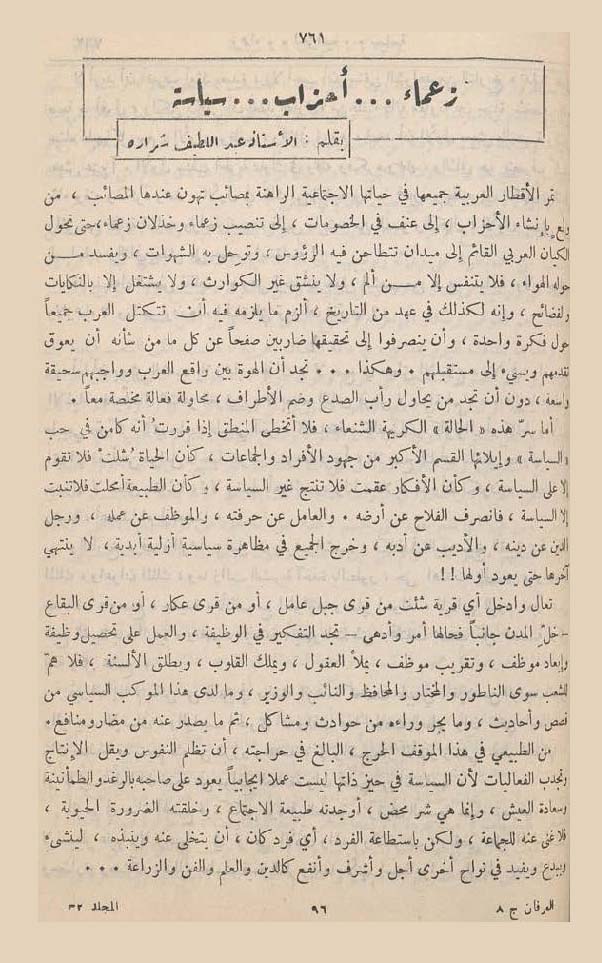 ٧٦١
زعماء ... أحزاب ... سياسة
بقلم : الأستاذ عبد اللطيف شراره
تمر الأقطار العربية جميعها في حياتها الاجتماعية الراهنة بمصائب تهون عندها المصائب ، من
ولع بإنشاء الأحزاب ، إلى عنف في الخصومات ، إلى تنصيب زعماء وخذلان زعماء، حتى تحول
الكيان العربي القائم إلى ميدان تتطاحن فيه الرؤوس ، وترحل به الشهوات ، ويفسد مـــن
حوله الهواء ، فلا يتنفس إلا مـــن ألم ، ولا ينشق غير الكوارث ، ولا يشتغل إلا بالنكايات
والفضائح ، وإنه لكذلك في عهد من التاريخ ، ألزم ما يلزمه فيه أن تتكتل العرب جميعاً
حول فكرة واحدة ، وأن ينصرفوا إلى تحقيقها ضاربين صفحاً عن كل ما من شأنه أن يعوق
تقدمهم ويسيء إلى مستقبلهم . وهكذا ... نجد أن الهوة بين واقع العرب وواجبهم سحيقة
واسعة ، دون أن تجد من يحاول رأب الصدع وضم الأطراف ، محاولة فعالة مخلصة معاً .
أما سرّ هذه « الحالة » الكريهة الشنعاء ، فلا أتخطى المنطق إذا قررت أنه كامن في حب
« السياسة » وإيلائها القسم الأكبر من جهود الأفراد والجماعات ، كأن الحياة شلت فلا تقوم
إلا على السياسة ، وكأن الأفكار عقمت فلا تنتج غير السياسة ، وكأن الطبيعة أمحلت فلا تنبت
إلا السياسة ، فانصرف الفلاح عن أرضه . والعامل عن حرفته ، والموظف عن عمله ، ورجل
الدين عن دينه ، والأديب عن أدبه ، وخرج الجميع في مظاهرة سياسية أزلية أبدية ، لا ينتهي
آخرها حتى يعود أولها !!
تعال وادخل أي قرية شئت من قرى جبل عامل ، أو من قرى عكار ، أو من قرى البقاع
- خلّ المدن جانباً فحالها أمر وأدهى - تجد التفكير في الوظيفة ، والعمل على تحصيل وظيفة
وإبعاد موظف ، وتقريب موظف ، يملأ العقول ، ويملك القلوب ، ويطلق الألسنة ، فلا همّ
للشعب سوى الناطور والمختار والمحافظ والنائب والوزير ، وما لدى هذا الموكب السياسي من
قصص وأحاديث ، وما يجر وراءه من حوادث ومشاكل ، ثم ما يصدر عنه من مضار ومنافع .
من الطبيعي في هذا الموقف الحرج ، البالغ في حراجته ، أن تظلم النفوس ويقل الإنتاج
وتجدب الفعاليات لأن السياسة في حيز ذاتها ليست عملا إيجابياً يعود على صاحبه بالرغد والطمأنينة
وسعادة العيش ، وإنما هي شر محض ، أوجدته طبيعة الاجتماع ، وخلقته الضرورة الحيوية ،
فلا غنى عنه للجماعة ، ولكن باستطاعة الفرد ، أي فرد كان ، أن يتخلى عنه وينبذه ، لينشىء
ويبدع ويفيد في نواح أخرى أجل وأشرف وأنفع كالدين والعلم والفن والزراعة ...
العرفان ج ٨
٩٦
المجلد ٣٢